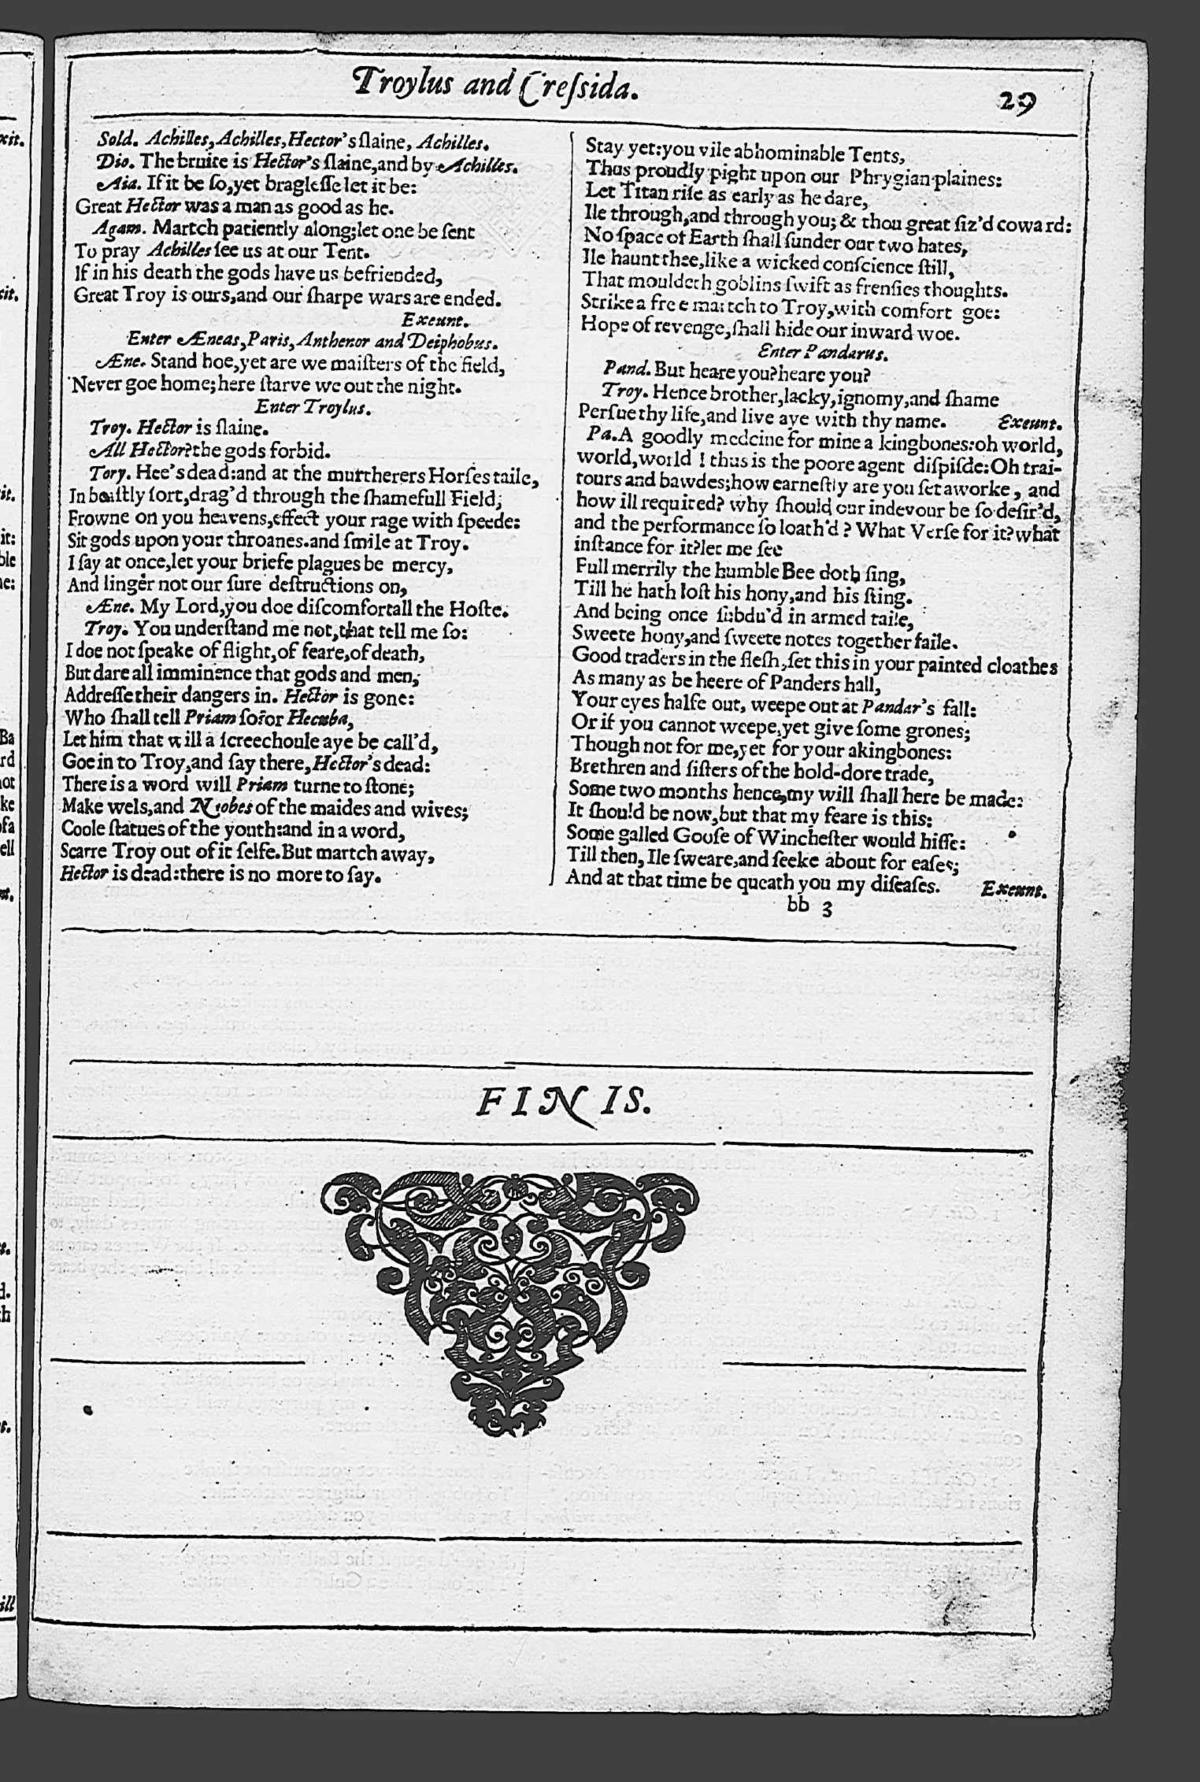 Troylus and Creſsida.
29
Sold. Achilles, Achilles, Hector's ſlaine, Achilles.
Dio. The bruite is Hector's ſlaine, and by Achilles.
Aia. If it be ſo, yet bragleſſe let it be:
Great Hector was a man as good as he.
Agam. Martch patiently along; let one be ſent
To pray Achilles ſee us at our Tent.
If in his death the gods have us befriended,
Great Troy is ours, and our ſharpe wars are ended.
Exeunt.
Enter Æneas, Paris, Anthenor and Deiphobus.
Æne. Stand hoe, yet are we maiſters of the field,
Never goe home; here ſtarve we out the night.
Enter Troylus.
Troy. Hector is ſlaine.
All Hector? the gods forbid.
Tory. Hee's dead: and at the murtherers Horſes taile,
In beaſtly ſort, drag'd through the ſhamefull Field;
Frowne on you heavens, effect your rage with ſpeede:
Sit gods upon your throanes. and ſmile at Troy.
I ſay at once, let your briefe plagues be mercy,
And linger not our ſure deſtructions on,
Æne. My Lord, you doe diſcomfort all the Hoſte.
Troy. You underſtand me not, that tell me ſo:
I doe not ſpeake of flight, of feare, of death,
But dare all imminence that gods and men,
Addreſſe their dangers in. Hector is gone:
Who ſhall tell Priam ſo? or Hecuba,
Let him that will a ſcreechoule aye be call'd,
Goe in to Troy, and ſay there, Hector's dead:
There is a word will Priam turne to ſtone;
Make wels, and Niobes of the maides and wives;
Coole ſtatues of the youth: and in a word,
Scarre Troy out of it ſelfe. But martch away,
Hector is dead: there is no more to ſay.
Stay yet: you vile abhominable Tents,
Thus proudly pight upon our Phrygian plaines:
Let Titan riſe as early as he dare,
Ile through, and through you; & thou great ſiz'd coward:
No ſpace of Earth ſhall ſunder our two hates,
Ile haunt thee, like a wicked conſcience ſtill,
That mouldeth goblins ſwift as frenſies thoughts.
Strike a free martch to Troy, with comfort goe:
Hope of revenge, ſhall hide our inward woe.
Enter Pandarus.
Pand. But heare you? heare you?
Troy. Hence brother, lacky, ignomy, and ſhame
Perſue thy life, and live aye with thy name. Exeunt.
Pa. A goodly medcine for mine akingbones: oh world,
world, world ! thus is the poore agent diſpiſde: Oh trai-
tours and bawdes; how earneſtly are you ſet aworke, and
how ill required? why ſhould our indevour be ſo deſir'd,
and the performance ſo loath'd ? What Verſe for it? what
inſtance for it? let me ſee
Full merrily the humble Bee doth ſing,
Till he hath loſt his hony, and his ſting.
And being once ſubdu'd in armed taile,
Sweete hony, and ſweete notes together faile.
Good traders in the fleſh, ſet this in your painted cloathes
As many as be heere of Panders hall,
Your eyes halfe out, weepe out at Pandar's fall:
Or if you cannot weepe, yet give ſome grones;
Though not for me, yet for your akingbones:
Brethren and ſiſters of the hold-dore trade,
Some two months hence, my will ſhall here be made:
It ſhould be now, but that my feare is this:
Some galled Gooſe of Wincheſter would hiſſe:
Till then, Ile ſweare, and ſeeke about for eaſes;
And at that time be queath you my diſeaſes. Exeunt.
bb 3
FINIS.